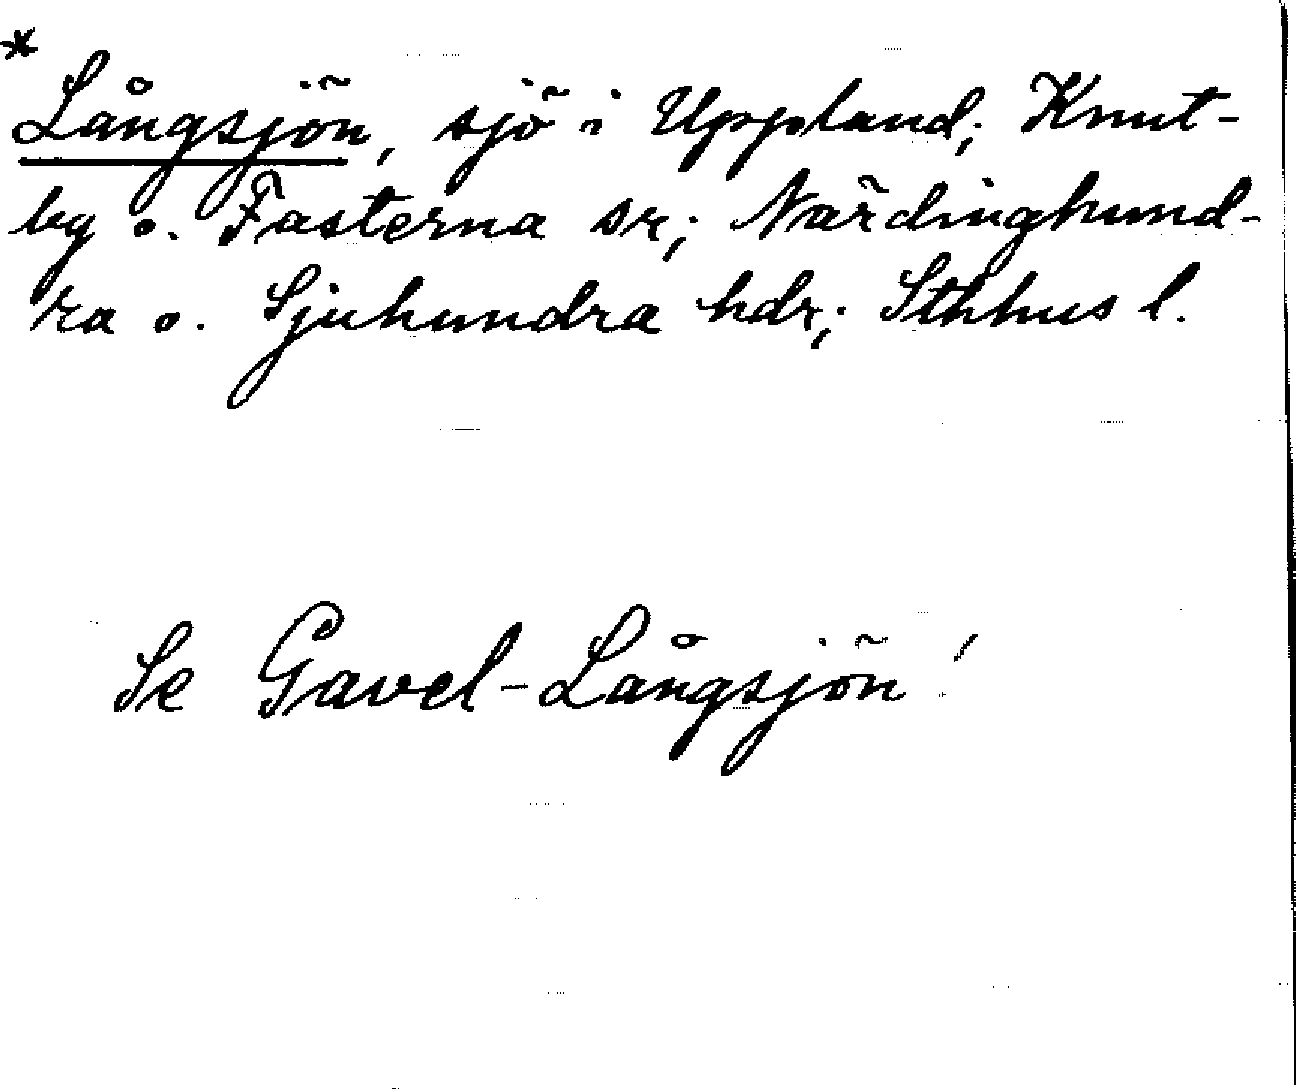 *
Långsjön, sjö i Uppland; Knut-
by o. Fasterna sr; Närdinghund-
ra o. Sjuhundra hdr; Sthlms l.
Se Gavel-Långsjön!